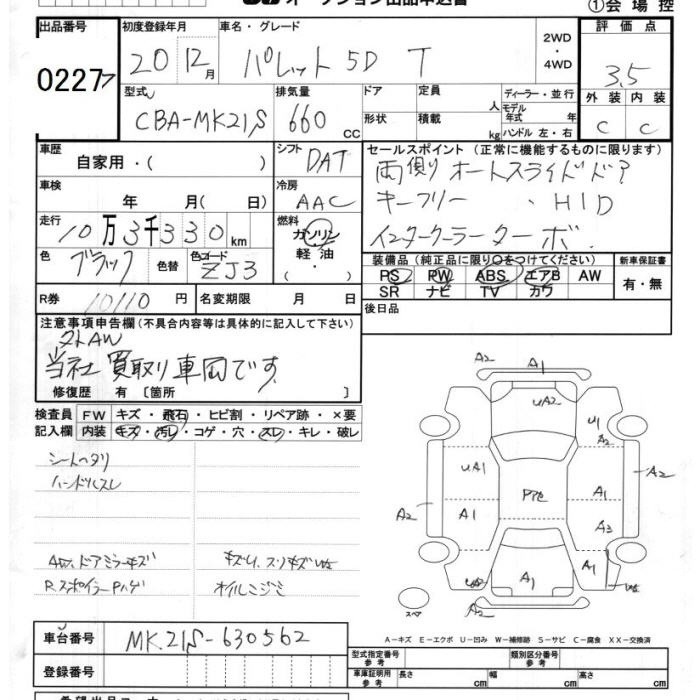 ①会場控
出品番号 初度登録年月 車名・グレード 2WD・4WD 評価点
0227 20 12月 パレット SD T 3.5
型式 排気量 ドア形状 定員 人 ディーラー・並行 外装 内装
CBA-MK21S 660cc 積載 kg モデル年式 年式 ハンドル 左・右 C C
車歴 自家用・( ) シフト DAT セールスポイント (正常に機能するものに限ります)
両側オートスライドドア
車検 年 月(日) 冷房 AAC キーフリー ・HID
走行 10万3千330km 燃料 ガソリン・軽油・( ) インタークーラーターボ
色 ブラック 色替 色コード ZJ3 装備品 (純正品に限り○をつけてください) 新車保証書
PS PW ABS エアB AW 有・無
SR ナビ TV カワ
R券 10110円 名変期限 月 日 後日品
注意事項申告欄 (不具合内容等は具体的に記入して下さい)
外AW
当社買取り車両です
修復歴 有 〔箇所 〕
検査員記入欄 FW キズ・飛石・ヒビ割・リペア跡・×要
内装 キズ・汚レ・コゲ・穴・スレ・キレ・破レ
シートヘタリ
ハンドルスレ
AW、ドアミラーキズ
R.スポイラーPハゲ オイルニジミ
A2 A1 A2
UA2 U1 A2
UA1 A1 A2
A2 A1 A3
A1
A2 A1
スペア
A-キズ E-エクボ U-凹み W-補修跡 S-サビ C-腐食 XX-交換済
車台番号 MK21S-630562
登録番号
型式指定番号 参考 類別区分番号 参考
車庫証明用 参考 長さ cm 幅 cm 高さ cm